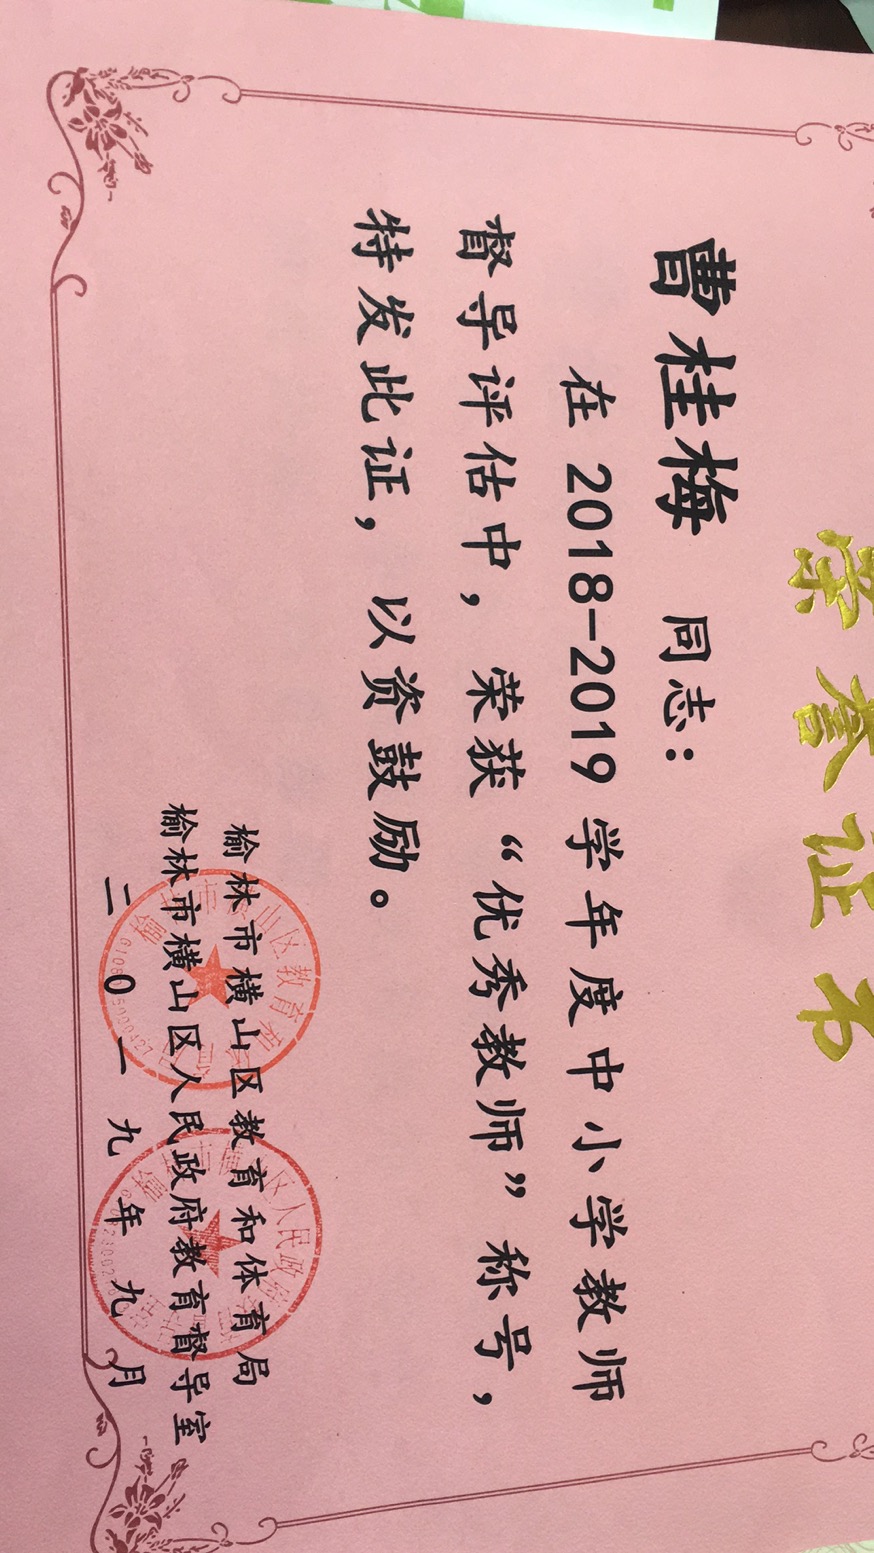 荣誉证书
曹桂梅 同志：
在 2018-2019 学年度中小学教师
督导评估中，荣获“优秀教师”称号，
特发此证，以资鼓励。
榆林市横山区教育和体育局
榆林市横山区人民政府教育督导室
二0一九年九月